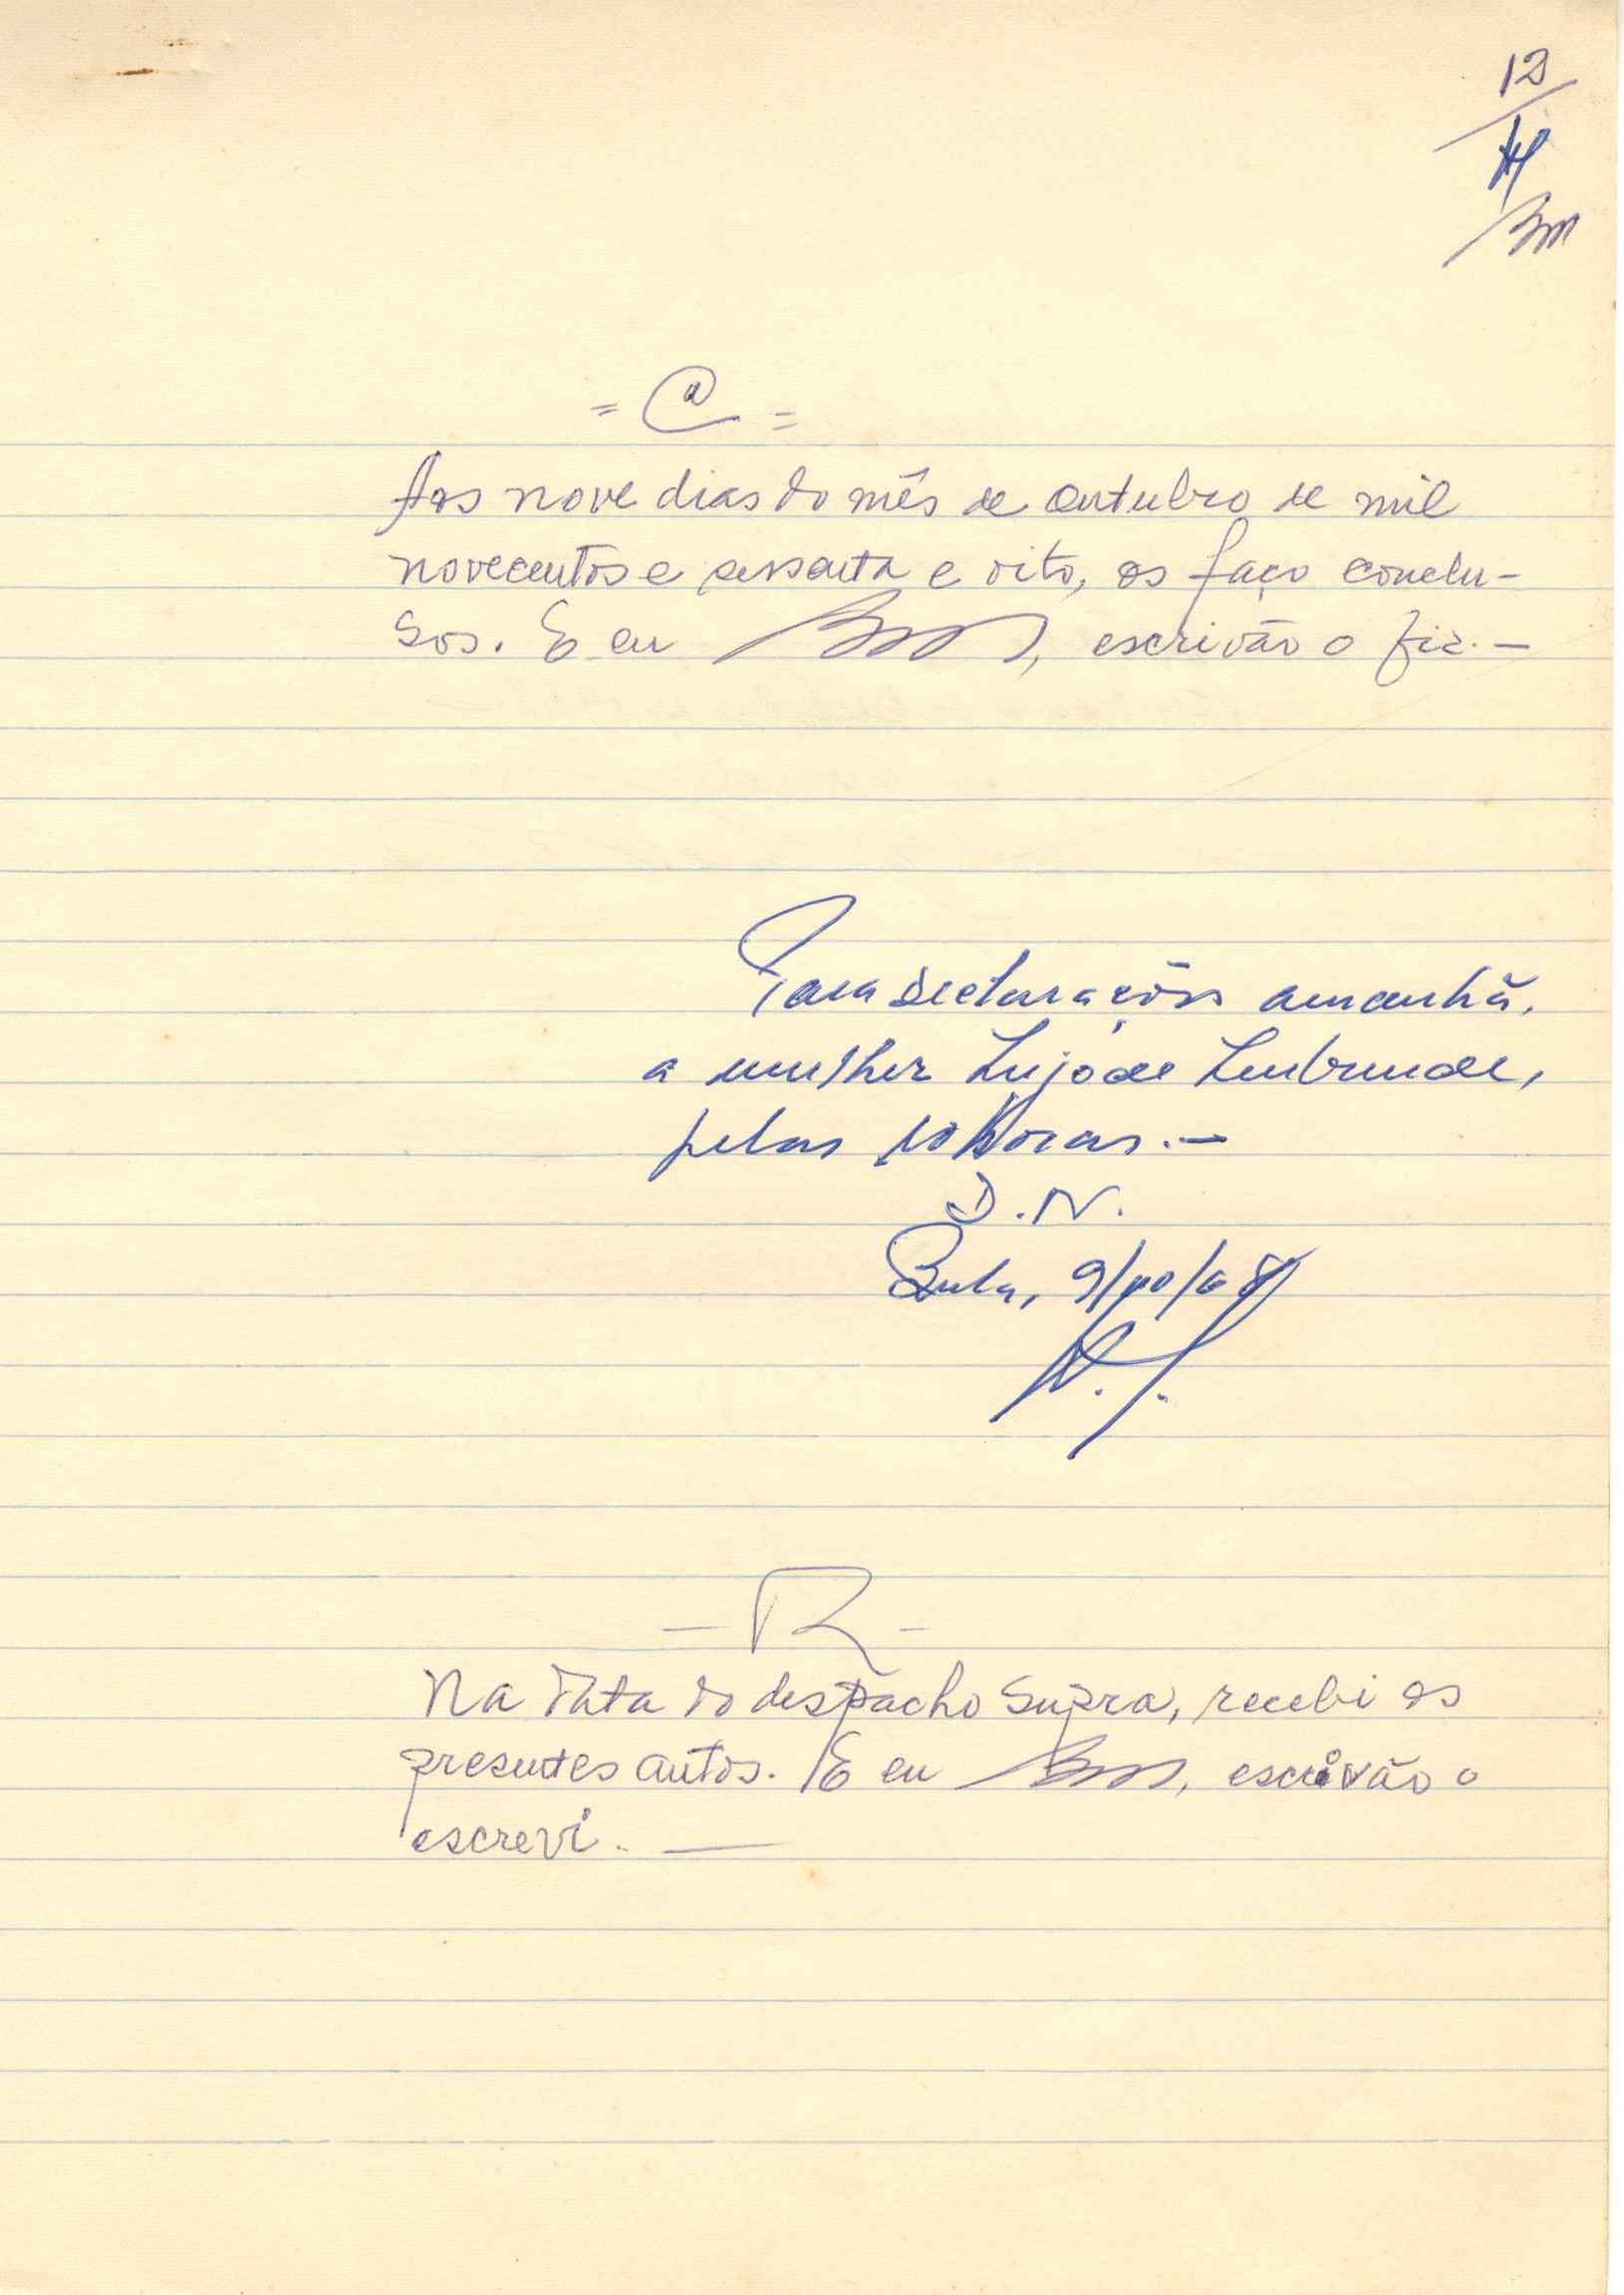 12
= C =
Aos nove dias do mês de outubro de mil
novecentos e sessenta e oito, os faço conclu-
sos. E eu , escrivão o fiz. —
Para declarações amanhã,
a mulher
pelas 10 horas. —
D. N.
9/10/68
— R —
Na data do despacho supra, recebi os
presentes autos. E eu , escrivão o
escrevi. —